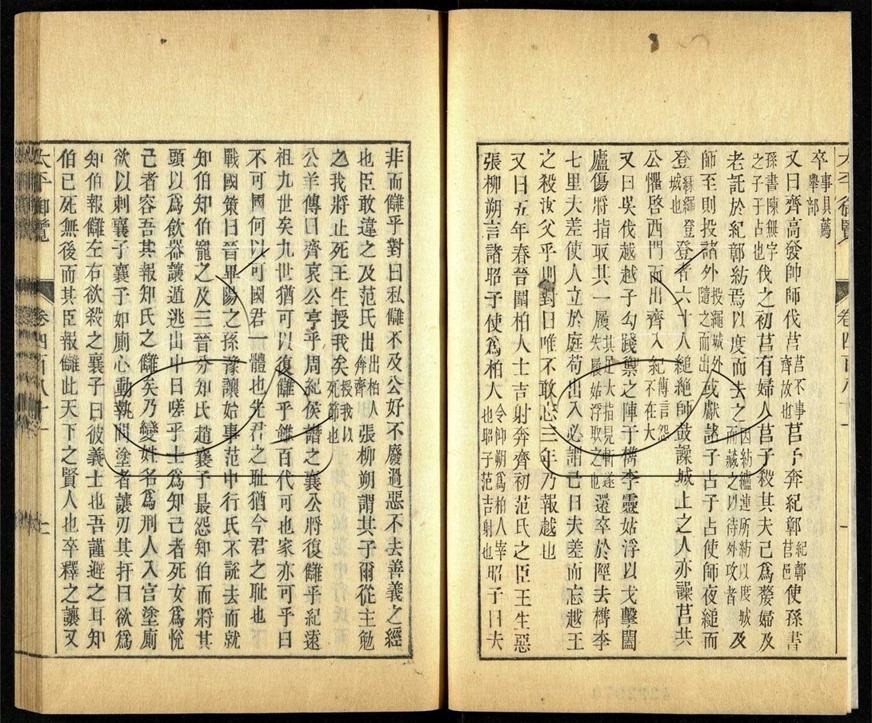 卒事具薦舉部
又曰齊高發帥師伐莒莒不事齊故也莒子奔紀鄣紀鄣莒邑使孫書
孫書陳無宇之子子占也伐之初莒有婦人莒子殺其夫己爲嫠婦及
老託於紀鄣紡焉以度而去之因紡纑連所紡以度城而藏之以待外攻者及
師至則投諸外投繩城外隨之而出或獻諸子占子占使師夜縋而
登緣繩登城也登者六十人縋絶師鼓譟城上之人亦譟莒共
公懼啓西門而出齊入紀傳言怨不在大
又曰吳伐越越子勾踐禦之陣于檇李靈姑浮以戈擊闔
廬傷將指取其一屨其足大指見斬遂失屨姑浮取之也還卒於陘去檇李
七里夫差使人立於庭苟出入必謂己曰夫差而忘越王
之殺汝父乎則對曰唯不敢忘三年乃報越也
又曰五年春晉圍柏人士吉射奔齊初范氏之臣王生惡
張柳朔言諸昭子使爲柏人令仰朔爲柏人宰也昭子范吉射也昭子曰夫
非而讎乎對曰私讎不及公好不廢過惡不去善義之經
也臣敢違之及范氏出出柏人奔齊張柳朔謂其子爾從主勉
之我將止死王生授我矣授我以死節也
公羊傳曰齊哀公亨乎周紀侯譖之襄公將復讎乎紀遠
祖九世矣九世猶可以復讎乎雖百代可也家亦可乎曰
不可國何以可國君一體也先君之耻猶今君之耻也
戰國策曰晉畢陽之孫豫讓始事范中行氏不說去而就
知伯知伯寵之及三晉分知氏趙襄子最怨知伯而將其
頭以爲飲器讓遁逃出中曰嗟乎士爲知己者死女爲悅
己者容吾其報知氏之讎矣乃變姓名爲刑人入宮塗廁
欲以刺襄子襄子如廁心動執問塗者讓刃其扞曰欲爲
知伯報讎左右欲殺之襄子曰彼義士也吾謹避之耳知
伯已死無後而其臣報讎此天下之賢人也卒釋之讓又
太平御覽 卷四百八十一 十一